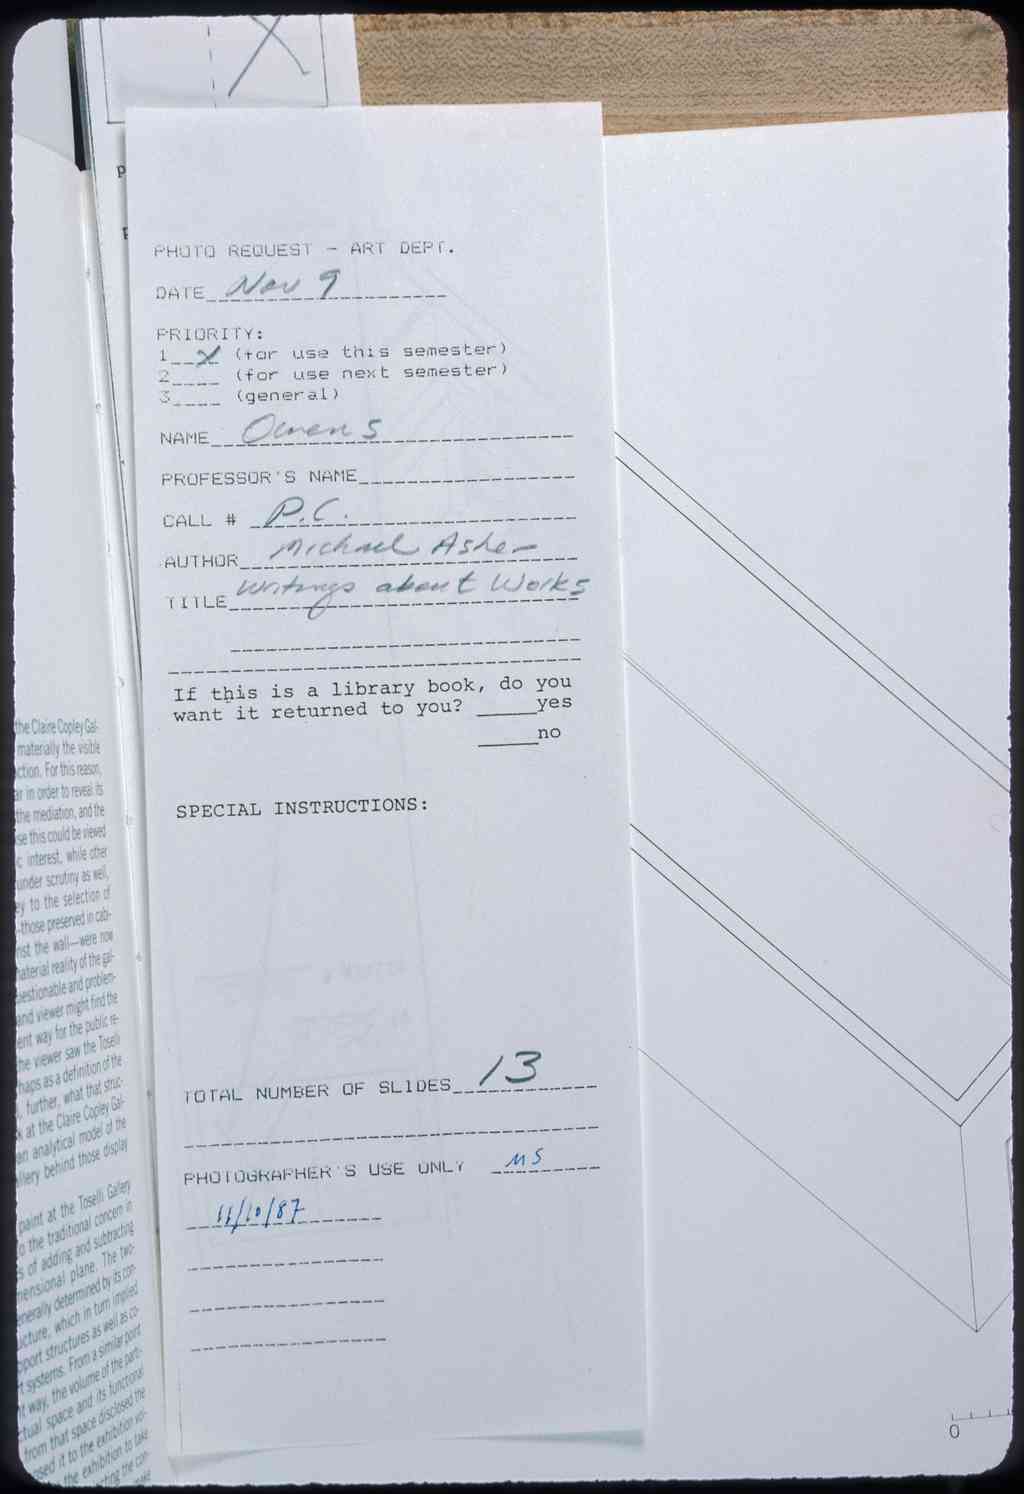 PHOTO REQUEST - ART DEPT.
DATE Nov 9
PRIORITY:
1 X (for use this semester)
2 (for use next semester)
3 (general)
NAME Owens
PROFESSOR'S NAME
CALL # P.C.
AUTHOR Michael Asher
TITLE Writings about Works
If this is a library book, do you
want it returned to you? yes
no
SPECIAL INSTRUCTIONS:
TOTAL NUMBER OF SLIDES 13
PHOTOGRAPHER'S USE ONLY MS
11/10/87
the Claire Copley Gal-
materially the visible
ction. For this reason,
ar in order to reveal its
the mediation, and the
se this could be viewed
c interest, while other
under scrutiny as well,
ey to the selection of
-those preserved in cab-
nst the wall—were now
aterial reality of the gal-
estionable and problem-
and viewer might find the
ent way for the public re-
he viewer saw the Toselli
haps as a definition of the
, further, what that struc-
k at the Claire Copley Gal-
an analytical model of the
llery behind those display
paint at the Toselli Gallery
o the traditional concern in
s of adding and subtracting
mensional plane. The two-
enerally determined by its con-
ucture, which in turn implied
pport structures as well as co-
t systems. From a similar point
t way, the volume of the parti-
ctual space and its functional
from that space disclosed the
sed it to the exhibition vol-
the exhibition to take
cting the con-
0